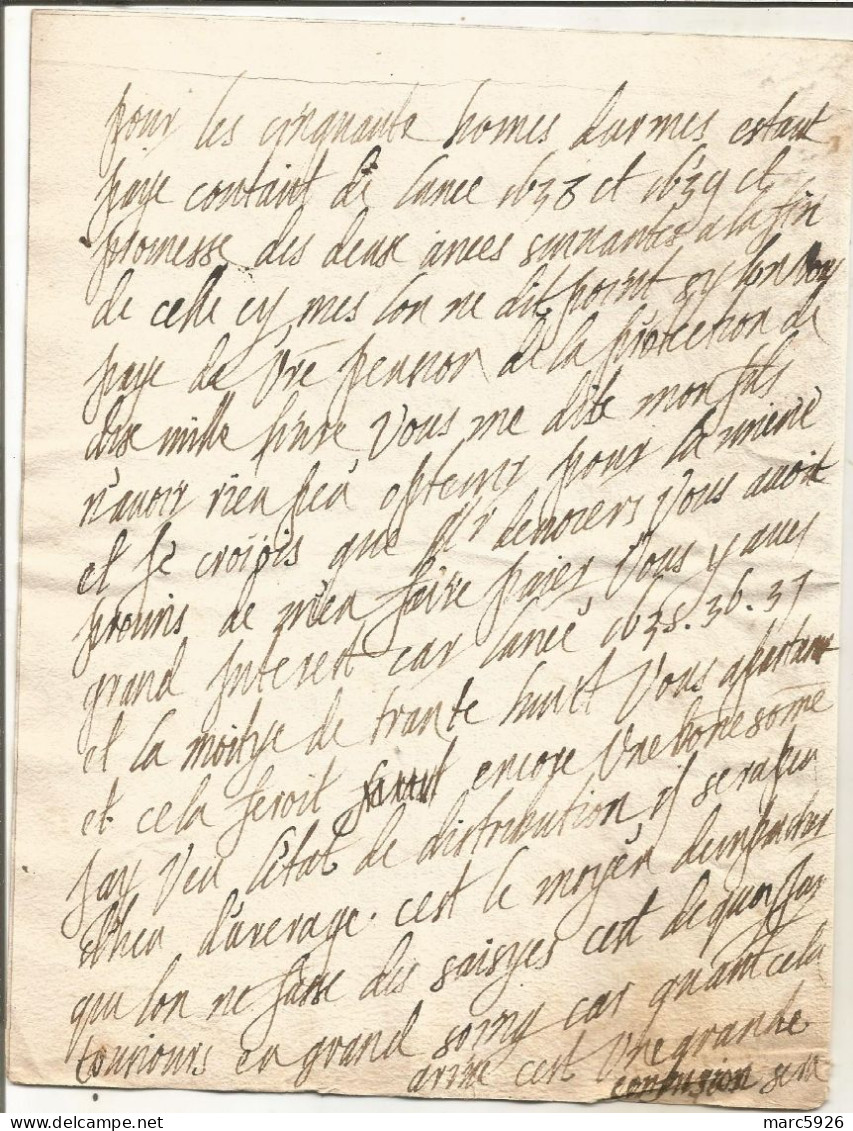 pour les cinquante homes darmes estant
paye contant de lanee 1638 et 1639 et
promesse des deux anees suivantes a la fin
de celle cy mes lon ne dit point sy lon
paye de Vre pension de la protection de
dix mille livre Vous me dite mon fils
n'avoir rien peu optenir pour la miene
et je croiois que Mr denoiers Vous avoit
promis de m'en faire paier Vous y aves
grand jnterest car lanee 1635.36.37
et la moitye de trante huict Vous
et cela feroit encore Vne bone some
jay Veu l'état de distribution il sera peu
d'average. cest le moyen dempecher
que lon ne fasse des saisyes cest de quoy jay
tousiours eu grand soing car quant cela
arive cest Vne grande
confusion
marc5926